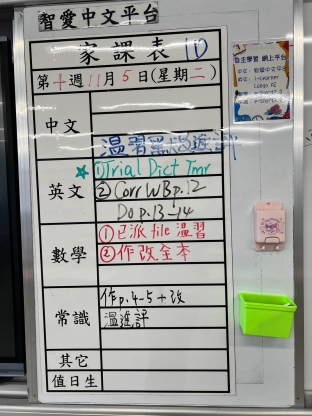 智愛中文平台
家課表 1D
第十週11月5日(星期二)
中文
溫習
英文
①Trial Dict Tmr
②Corr WB p.12
Do p.13-14
數學
①已派file溫習
②作改全本
常識
作p.4-5+改
溫進評
其它
值日生
自主學習 網上平台